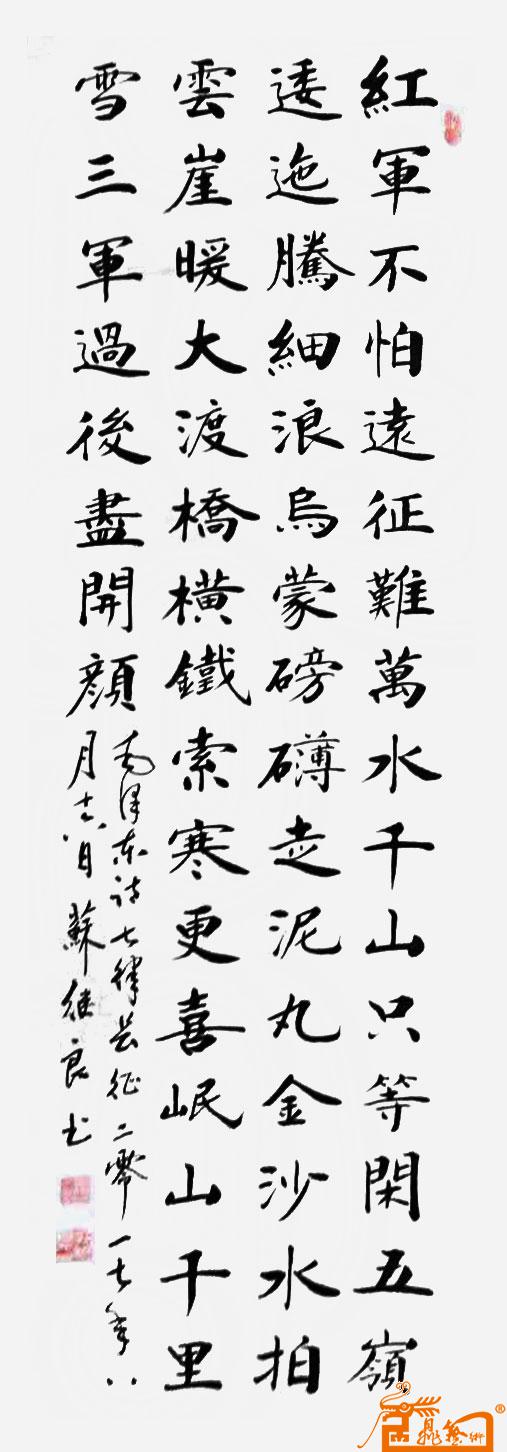 紅軍不怕遠征難萬水千山只等閑五嶺
逶迤騰細浪烏蒙磅礴走泥丸金沙水拍
雲崖暖大渡橋橫鐵索寒更喜岷山千里
雪三軍過後盡開顏
毛泽东诗七律长征二零一七年八
月十六日蘇继良书